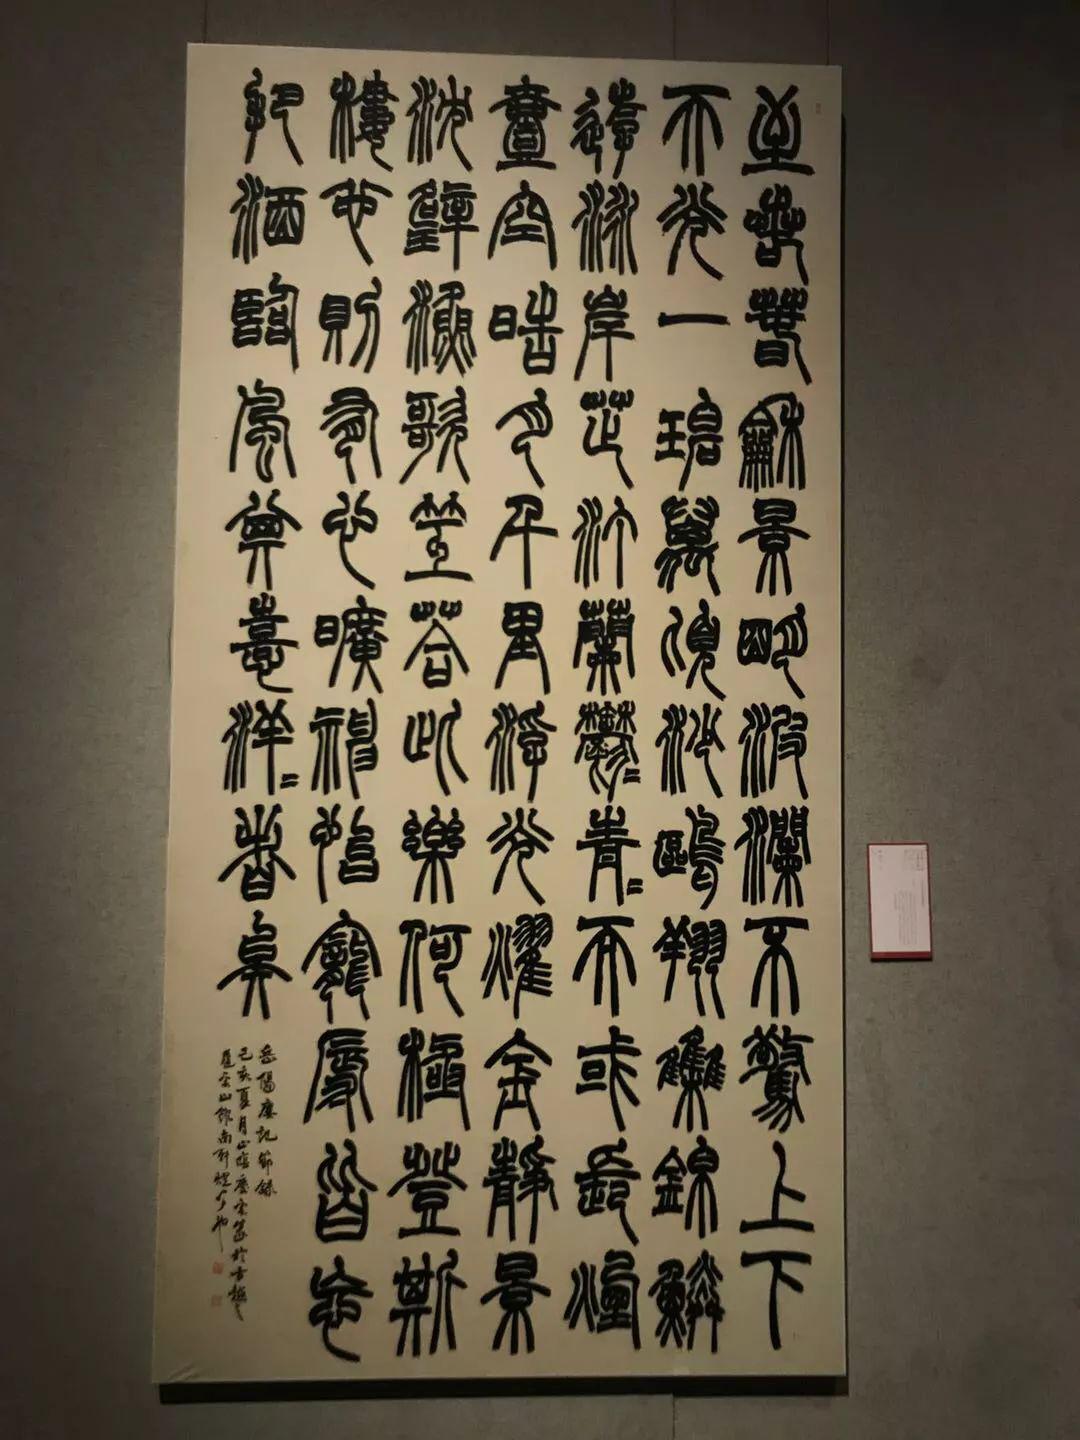 至若春龢景明波瀾不驚上下
天光一碧萬頃沙鷗翔集錦鱗
游泳岸芷汀蘭鬱〻青〻而或長煙
壹空皓月千里浮光耀金靜景
沈璧漁歌互荅此樂何極登斯
樓也則有心曠神怡寵辱皆忘
把酒臨風其喜洋〻者矣
岳陽樓記節錄
己亥夏月山陰